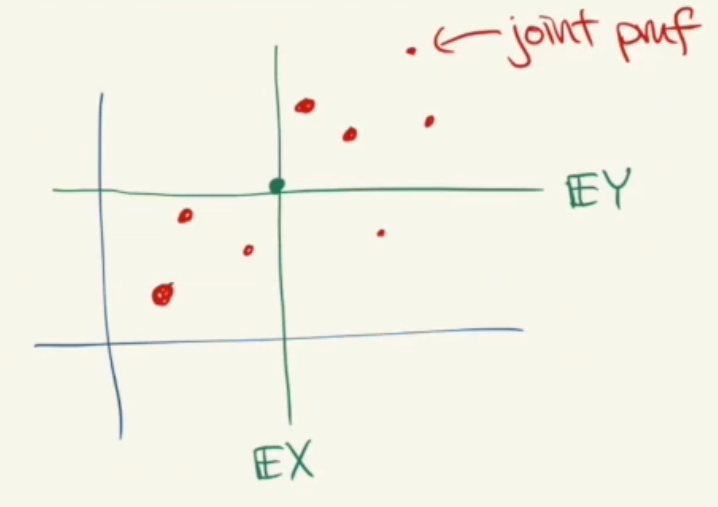 joint pmf
EY
EX